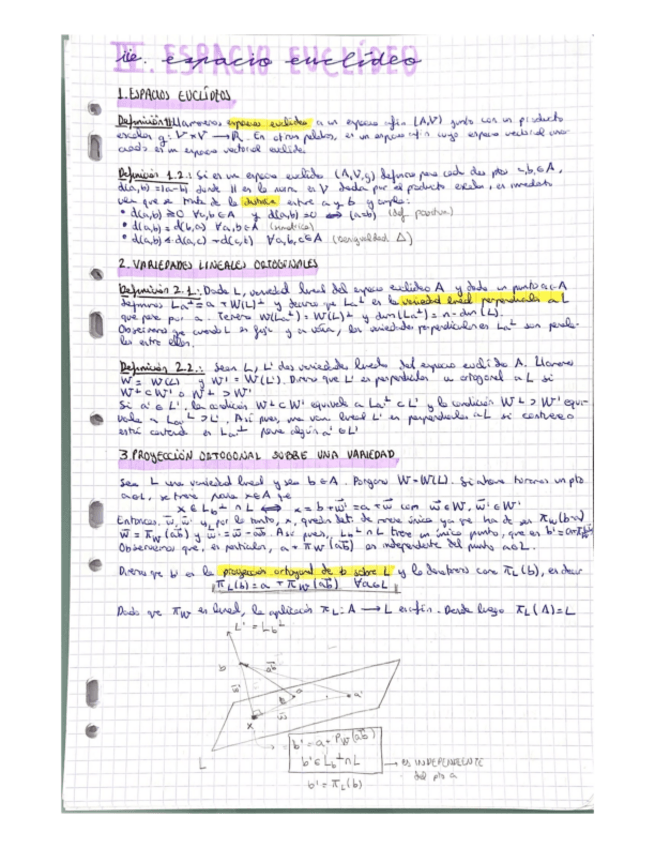 III. ESPACIO EUCLÍDEO
1. ESPACIOS EUCLÍDEOS
Definición 1.1: Llamaremos espacio euclídeo a un espacio afín (A,V) junto con un producto
escalar g: V×V → ℝ. En otras palabras, es un espacio afín cuyo espacio vectorial aso-
ciado es un espacio vectorial euclídeo.
Definición 1.2.: Si es un espacio euclídeo (A,V,g) definimos para cada dos ptos a,b∈A,
d(a,b) = |a-b| donde || es la norma en V dada por el producto escalar, es inmediato
ver que se trata de la distancia entre a y b y cumple:
• d(a,b) ≥ 0 ∀a,b∈A y d(a,b) = 0 ⟺ (a=b) (def positiva)
• d(a,b) = d(b,a) ∀a,b∈A (simétrica)
• d(a,b) ≤ d(a,c) + d(c,b) ∀a,b,c∈A (desigualdad Δ)
2. VARIEDADES LINEALES ORTOGONALES
Definición 2.1.: Dada L, variedad lineal del espacio euclídeo A y dado un punto a∈A
definimos La⊥ = a + W(L)⊥ y decimos que La⊥ es la variedad lineal perpendicular a L
que pasa por a. Tenemos W(La⊥) = W(L)⊥ y dim(La⊥) = n - dim(L).
Observemos que cuando L es fija y a varía, las variedades perpendiculares La⊥ son parale-
las entre ellas.
Definición 2.2.: Sean L, L' dos variedades lineales del espacio euclídeo A. Llamemos
W = W(L) y W' = W(L'). Diremos que L' es perpendicular u ortogonal a L si
W⊥ ⊂ W' o W⊥ ⊃ W'
Si a' ∈ L', la condición W⊥ ⊂ W' equivale a La'⊥ ⊂ L' y la condición W⊥ ⊃ W' equi-
vale a La'⊥ ⊃ L'. Así pues, una var. lineal L' es perpendicular a L si contiene o
está contenida en La'⊥ para algún a' ∈ L'
3. PROYECCIÓN ORTOGONAL SOBRE UNA VARIEDAD
Sea L una variedad lineal y sea b∈A. Pongamos W = W(L). Si ahora tomamos un pto
a∈L, se tiene para x∈A que
x ∈ Lb⊥ ∩ L ⟺ x = b + w' = a + w con w∈W, w'∈W⊥
Entonces w, w' y, por lo tanto, x, quedan det. de manera única ya que ha de ser
w = πW(ab) y w' = w - ab. Así pues, Lb⊥ ∩ L tiene un único punto, que es b' = a + πW(ab)
Observemos que, en particular, a + πW(ab) es independiente del punto a∈L.
Diremos que b' es la proyección ortogonal de b sobre L y lo denotaremos como πL(b), es decir
πL(b) = a + πW(ab) ∀a∈L
Dado que πW es lineal, la aplicación πL: A → L es afín. Desde luego πL(A) = L
L' = Lb⊥
b
ab
w'
a
a'
w
x
L
b' = a + PW(ab)
b' ∈ Lb⊥ ∩ L
→ es INDEPENDIENTE
del pto a
b' = πL(b)